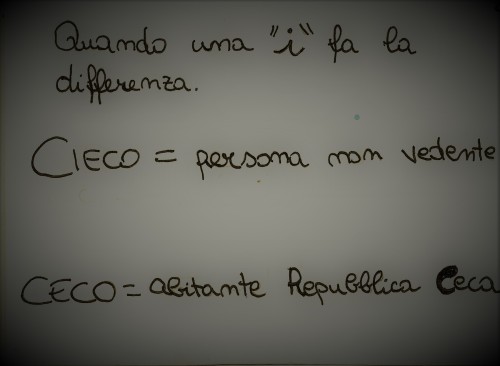 Quando una "i" fa la
differenza.
CIECO = persona non vedente
CECO = abitante Repubblica Ceca